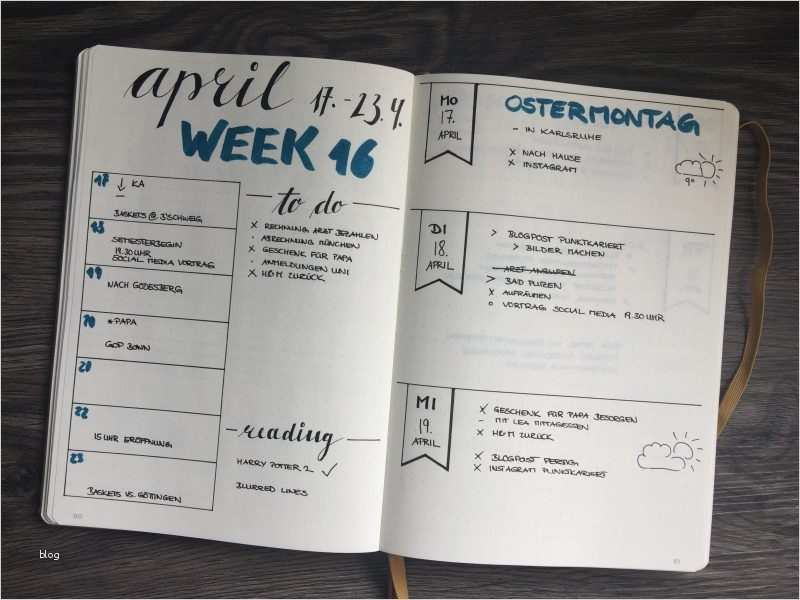 april 17.-23.4.
WEEK 16
17 ↓ KA
BASKETS @ B'SCHWEIG
18
SEMESTERBEGIN
19.30 UHR
SOCIAL MEDIA VORTRAG
19
NACH GODESBERG
20
*PAPA
GOP BONN
22
15 UHR ERÖFFNUNG
23
BASKETS VS. GÖTTINGEN
to do
x RECHNUNG ARZT BEZAHLEN
· ABRECHNUNG MÜNCHEN
x GESCHENK FÜR PAPA
· ANMELDUNGEN UNI
x H&M ZURÜCK
reading
HARRY POTTER 2 ✓
BLURRED LINES
MO
17.
APRIL
OSTERMONTAG
– IN KARLSRUHE
x NACH HAUSE
x INSTAGRAM
DI
18.
APRIL
> BLOGPOST PUNKTKARIERT
> BILDER MACHEN
ARZT ANRUFEN
> BAD PUTZEN
x AUFRÄUMEN
o VORTRAG SOCIAL MEDIA 19.30 UHR
MI
19.
APRIL
x GESCHENK FÜR PAPA BESORGEN
– MIT LEA MITTAGESSEN
x H&M ZURÜCK
x BLOGPOST FERTIG
x INSTAGRAM PUNKTKARIERT
blog